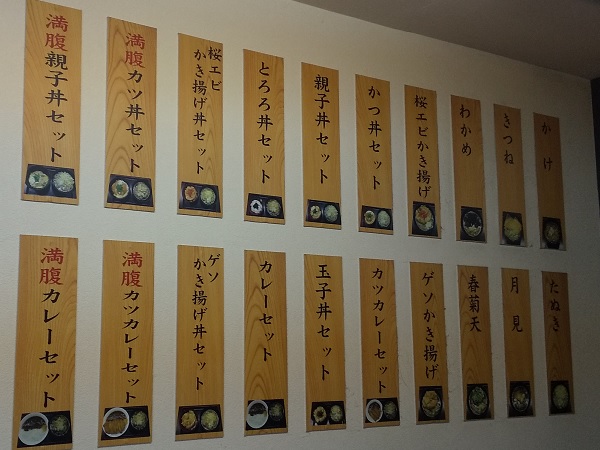 かけ
きつね
わかめ
桜エビかき揚げ
かつ丼セット
親子丼セット
とろろ丼セット
桜エビ
かき揚げ丼セット
満腹カツ丼セット
満腹親子丼セット
たぬき
月見
春菊天
ゲソかき揚げ
カツカレーセット
玉子丼セット
カレーセット
ゲソ
かき揚げ丼セット
満腹カツカレーセット
満腹カレーセット